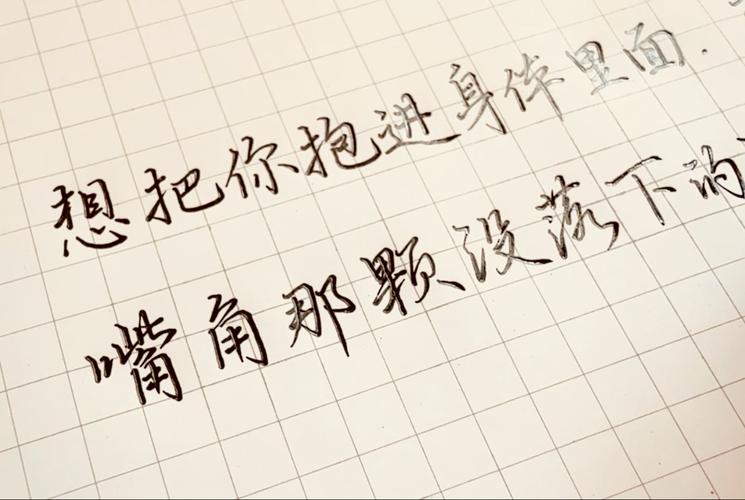 想把你抱进身体里面.
嘴角那颗没落下的